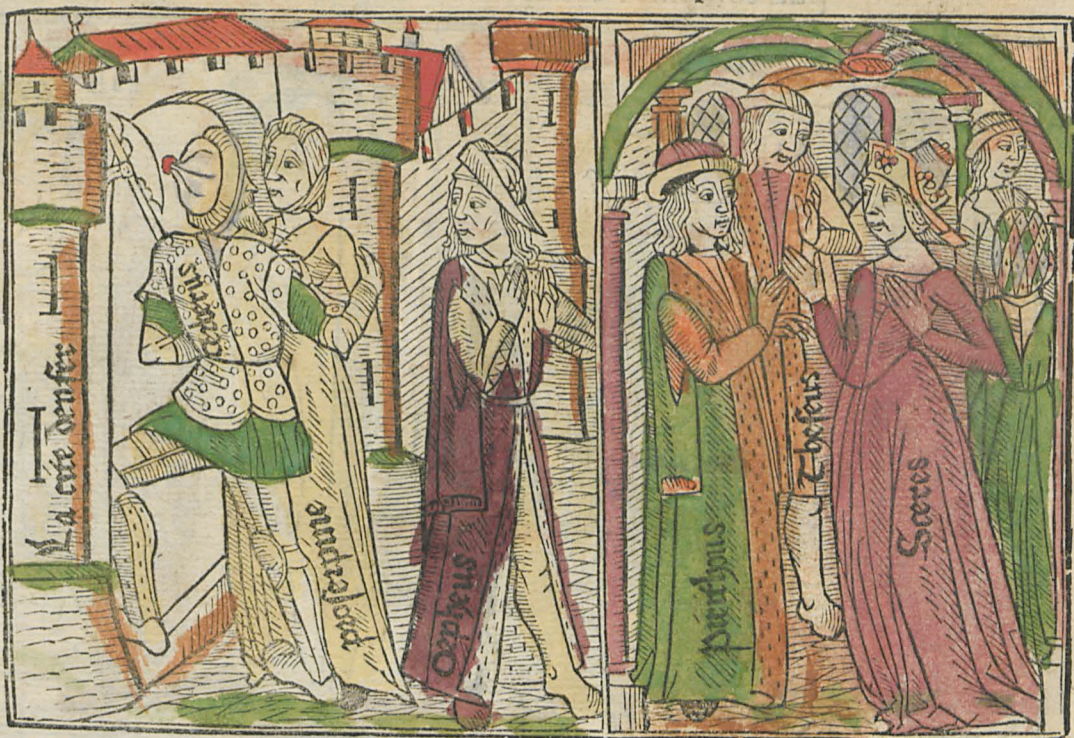 La cite denfer
cerberus
proserpine
Orpheus
pirithous
Theseus
Sceres